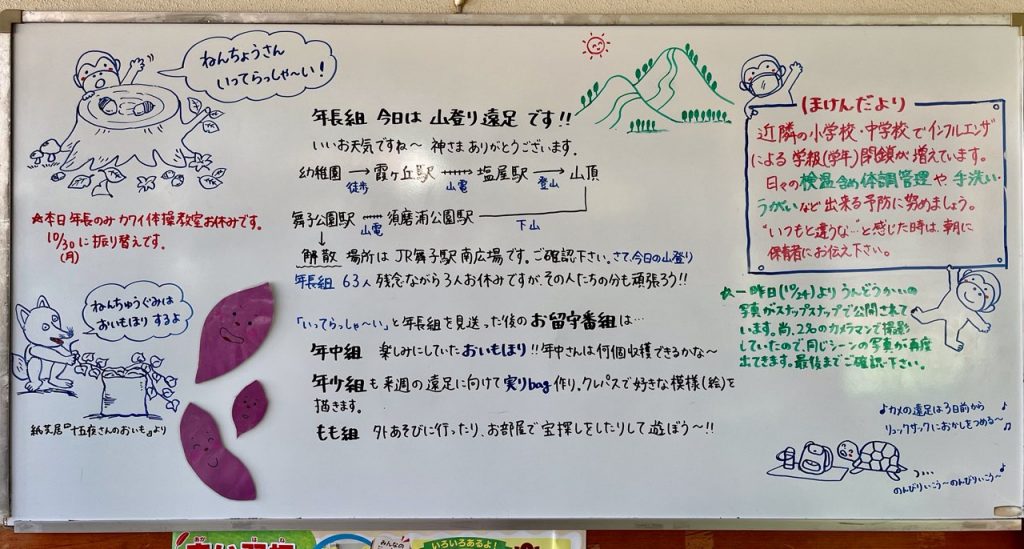 ねんちょうさん
いってらっしゃ〜い!
年長組 今日は 山登り遠足 です!!
いいお天気ですね〜 神さまありがとうございます。
幼稚園 → 霞ヶ丘駅 → 塩屋駅 → 山頂
徒歩 山電 登山
舞子公園駅 須磨浦公園駅
山電 下山
↓
解散 場所は JR舞子駅 南広場です。ご確認下さい。さて、今日の山登り
年長組 63人 残念ながら3人お休みですが、その人たちの分も頑張ろう!!
★本日 年長のみ カワイ体操教室お休みです。
10/30に振り替えです。
(月)
ねんちゅうぐみは
おいもほり するよ
紙芝居『十五夜さんのおいも』より
「いってらっしゃ〜い」と年長組を見送った後のお留守番組は…
年中組 楽しみにしていたおいもほり!!年中さんは何個収穫できるかな〜
年少組も来週の遠足に向けて実りbag作り。クレパスで好きな模様(絵)を
描きます。
もも組 外あそびに行ったり、お部屋で宝探しをしたりして遊ぼう〜!!
ほけんだより
近隣の小学校・中学校でインフルエンザ
による学級(学年)閉鎖が増えています。
日々の検温含め体調管理や、手洗い・
うがいなど出来る予防に努めましょう。
"いつもと違うな…"と感じた時は、朝に
保育者にお伝え下さい。
★一昨日(10/24)よりうんどうかいの
写真がスナップスナップで公開されて
います。尚、2名のカメラマンで撮影
していたので、同じシーンの写真が再度
出てきます。最後までご確認下さい。
♪カメの遠足は3日前から
リュックサックにおかしをつめる〜♫
のんびりいこう〜のんびりいこう〜♪
みんなの
いろいろあるよ!